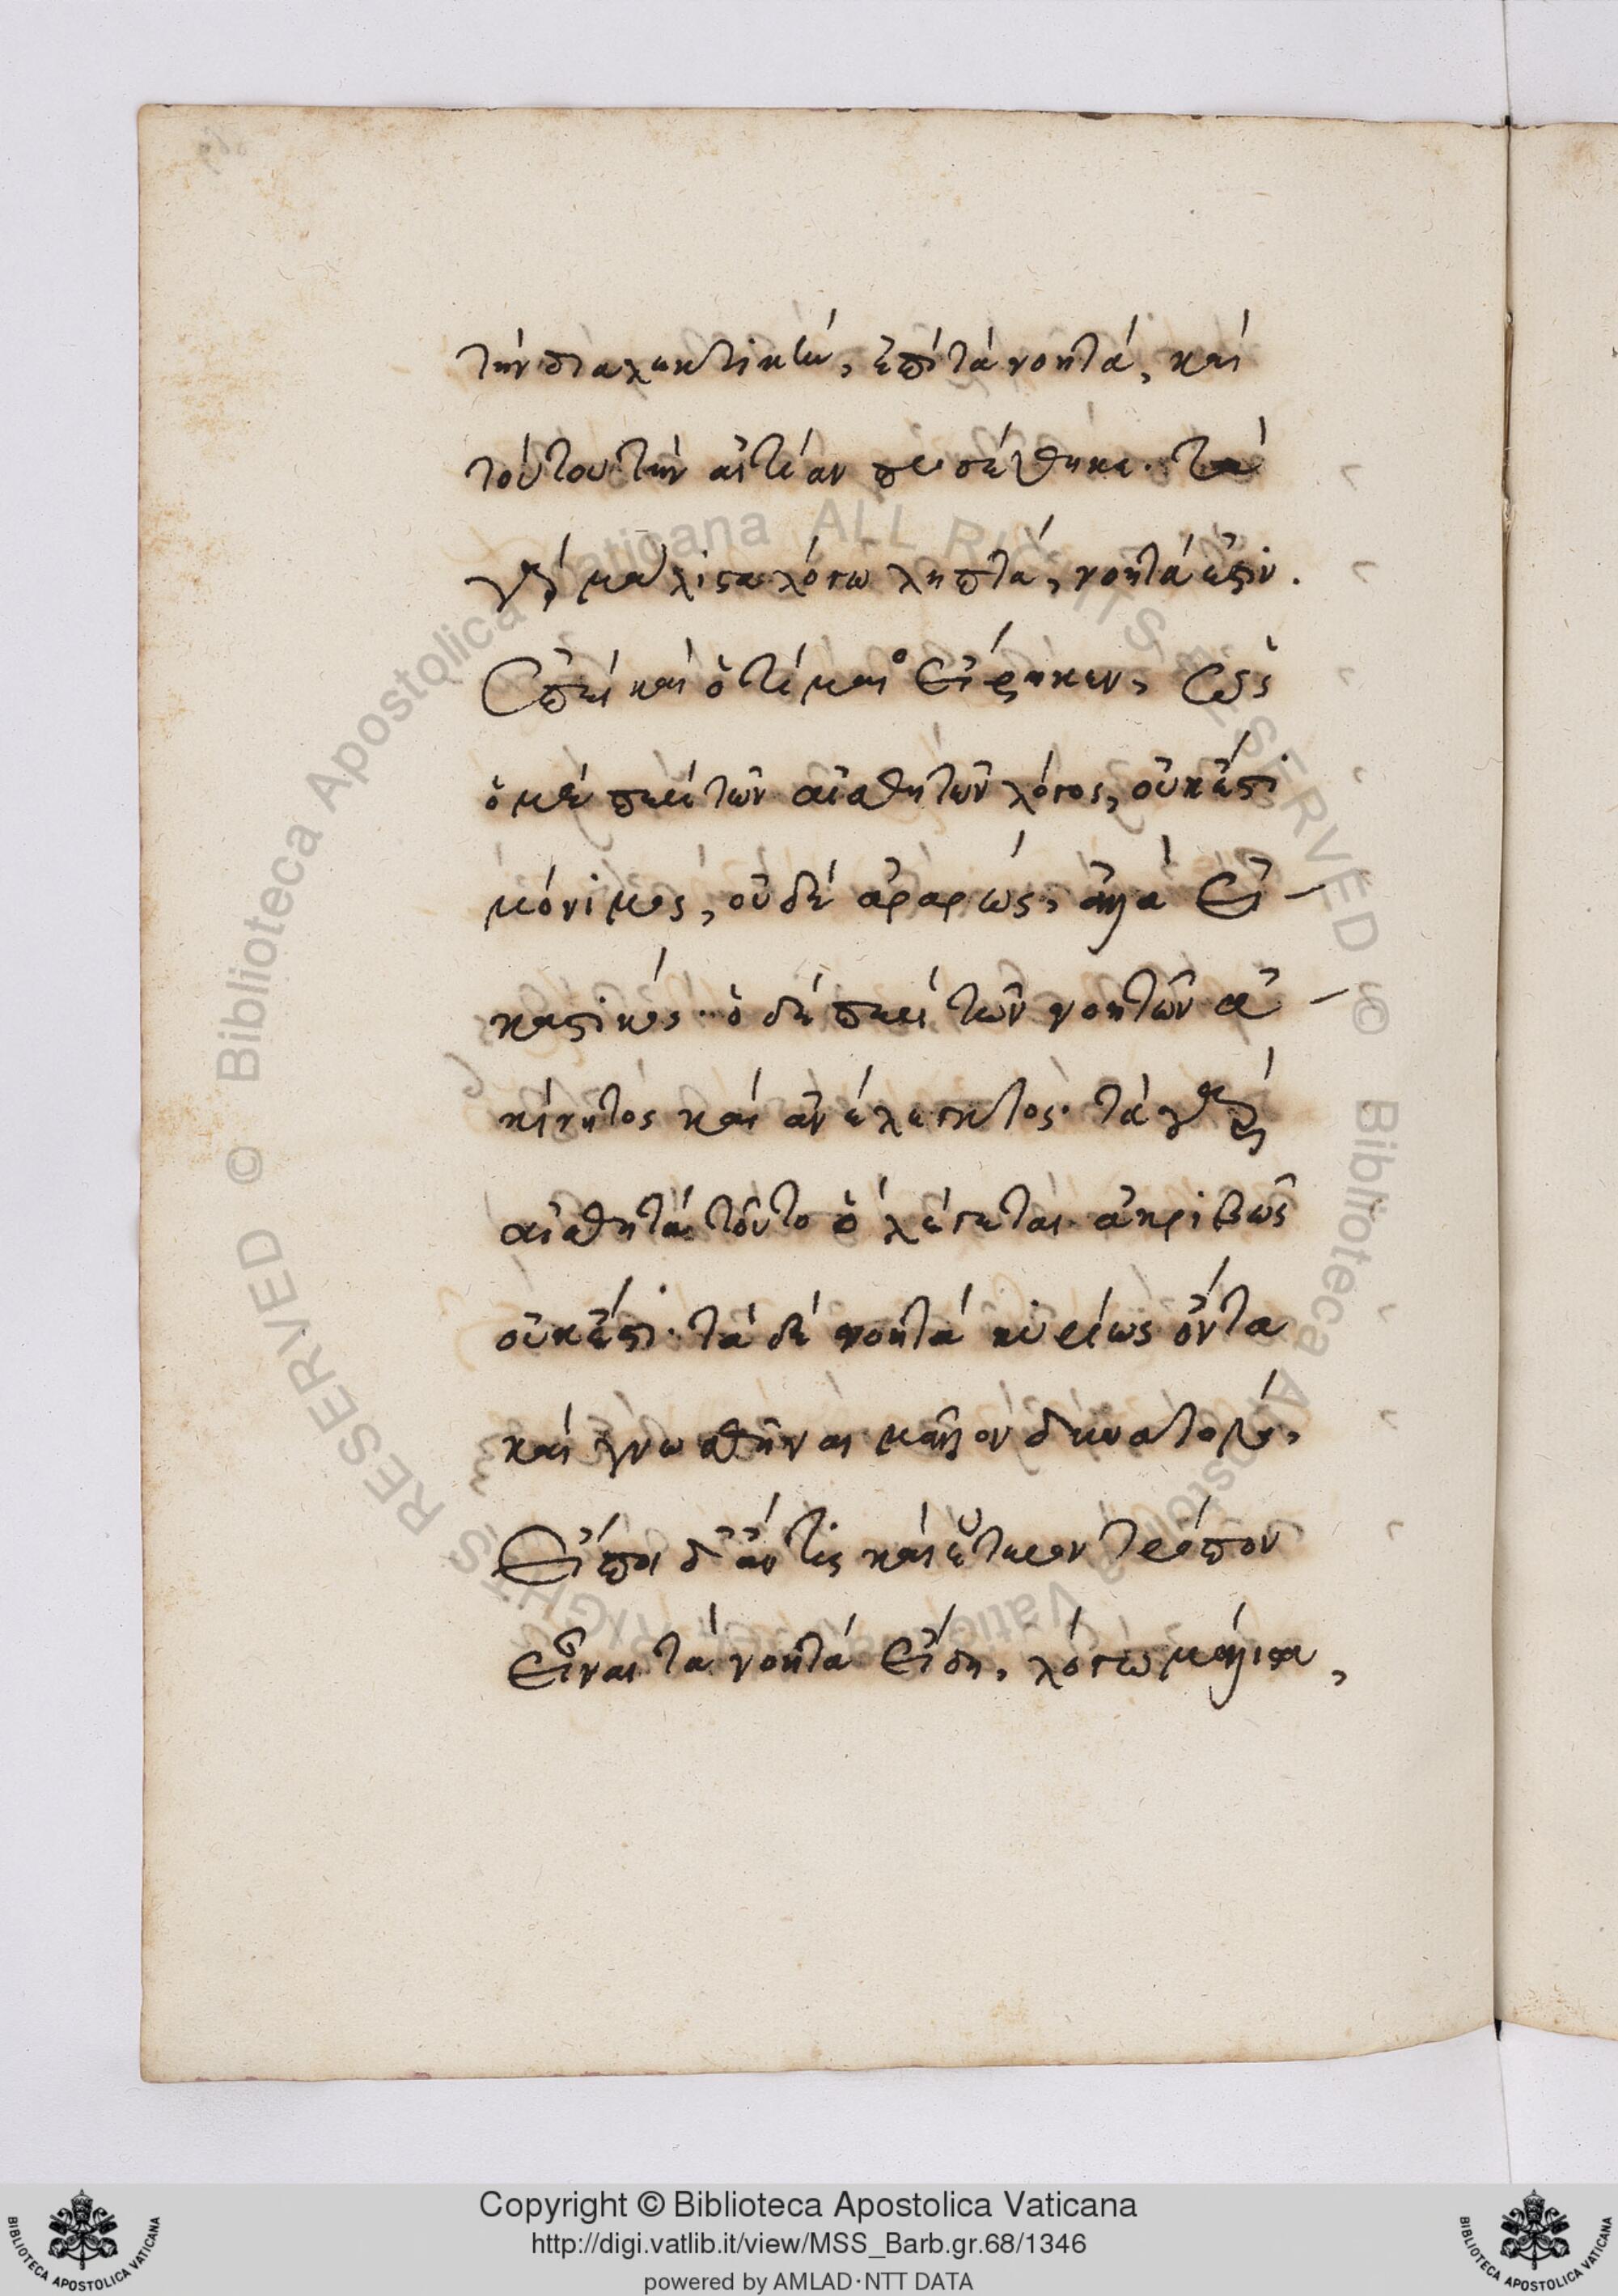 τὴν διαλεκτικὴν, ἐπὶ τὰ νοητά, καὶ
τούτου τὴν αἰτίαν προσέθηκε· τὰ
γὰρ μάλιστα λόγω ληπτὰ, νοητά ἐστιν.
Ἐπεὶ καὶ ὁ τίμαιος εἴρηκεν, ὡς
ὁ μὲν περὶ τῶν αἰσθητῶν λόγος, οὐκ ἔστι
μόνιμος, οὐδὲ ἀραρώς, ἀλλὰ εἰ-
καστικός· ὁ δὲ περὶ τῶν νοητῶν ἀ-
κίνητος καὶ ἀνέλεγκτος· τὰ γὰρ
αἰσθητὰ τοῦτο ὃ λέγεται ἀκριβῶς
οὐκ ἔστι· τὰ δὲ νοητὰ κυρίως ὄντα
καὶ γνωσθῆναι μᾶλλον
Εἴποι δ' ἄν τις καὶ ἕτερον τρόπον
εἶναι τὰ νοητὰ εἴδη, λόγω μάλιστα,
Copyright © Biblioteca Apostolica Vaticana
http://digi.vatlib.it/view/MSS_Barb.gr.68/1346
powered by AMLAD·NTT DATA
BIBLIOTECA APOSTOLICA VATICANA
BIBLIOTECA APOSTOLICA VATICANA
© Biblioteca Apostolica Vaticana ALL RIGHTS RESERVED
© Biblioteca Apostolica Vaticana ALL RIGHTS RESERVED